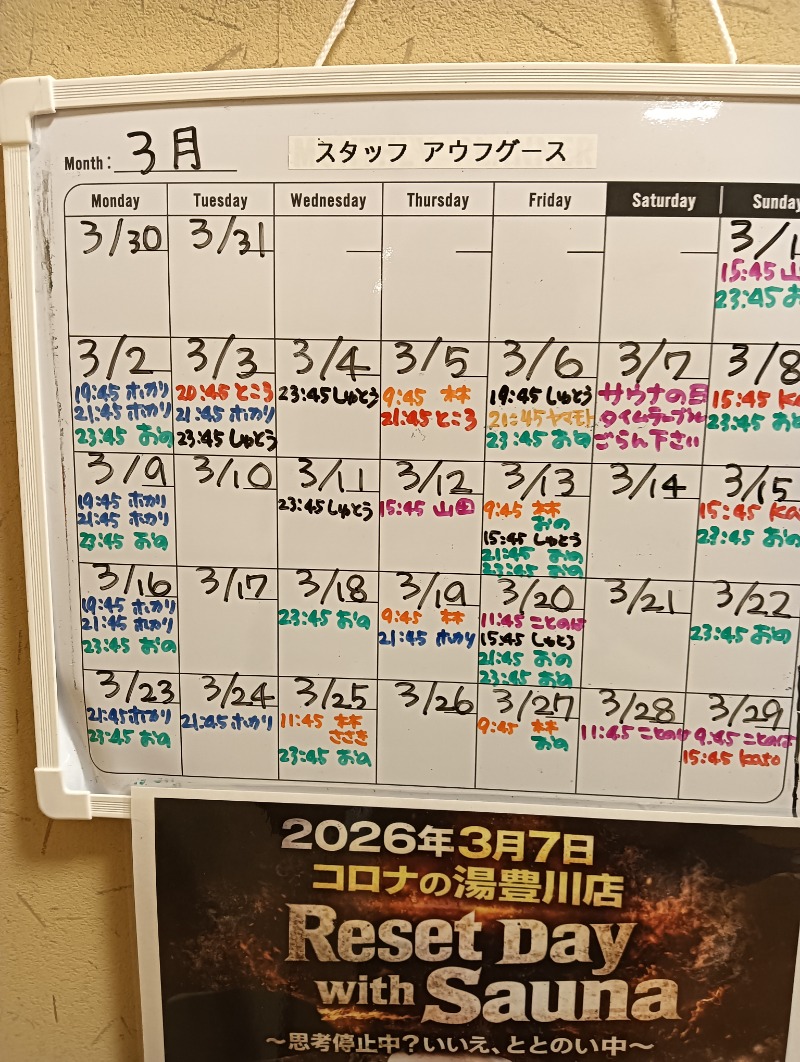 Month: 3月
スタッフ アウフグース
Monday Tuesday Wednesday Thursday Friday Saturday Sunday
3/30 3/31 3/1
15:45 山
23:45 お
3/2 3/3 3/4 3/5 3/6 3/7 3/8
19:45 ホカリ 20:45 ところ 23:45 しゅとう 9:45 林 19:45 しゅとう サウナの日 15:45 Ka
21:45 ホカリ 21:45 ホカリ 21:45 ところ 21:45 ヤマモト タイムテーブル 23:45 おの
23:45 おの 23:45 しゅとう 23:45 おの ごらん下さい
3/9 3/10 3/11 3/12 3/13 3/14 3/15
19:45 ホカリ 23:45 しゅとう 15:45 山田 9:45 林 15:45 Ka
21:45 ホカリ おの 23:45 おの
23:45 おの 15:45 しゅとう
21:45 おの
23:45 おの
3/16 3/17 3/18 3/19 3/20 3/21 3/22
19:45 ホカリ 23:45 おの 9:45 林 11:45 ことのは 23:45 おの
21:45 ホカリ 21:45 ホカリ 15:45 しゅとう
23:45 おの 21:45 おの
23:45 おの
3/23 3/24 3/25 3/26 3/27 3/28 3/29
21:45 ホカリ 21:45 ホカリ 11:45 林 9:45 林 11:45 ことのは 9:45 ことのは
23:45 おの ささき おの 15:45 Kato
23:45 おの
2026年3月7日
コロナの湯豊川店
Reset Day
with Sauna
～思考停止中?いいえ、ととのい中～